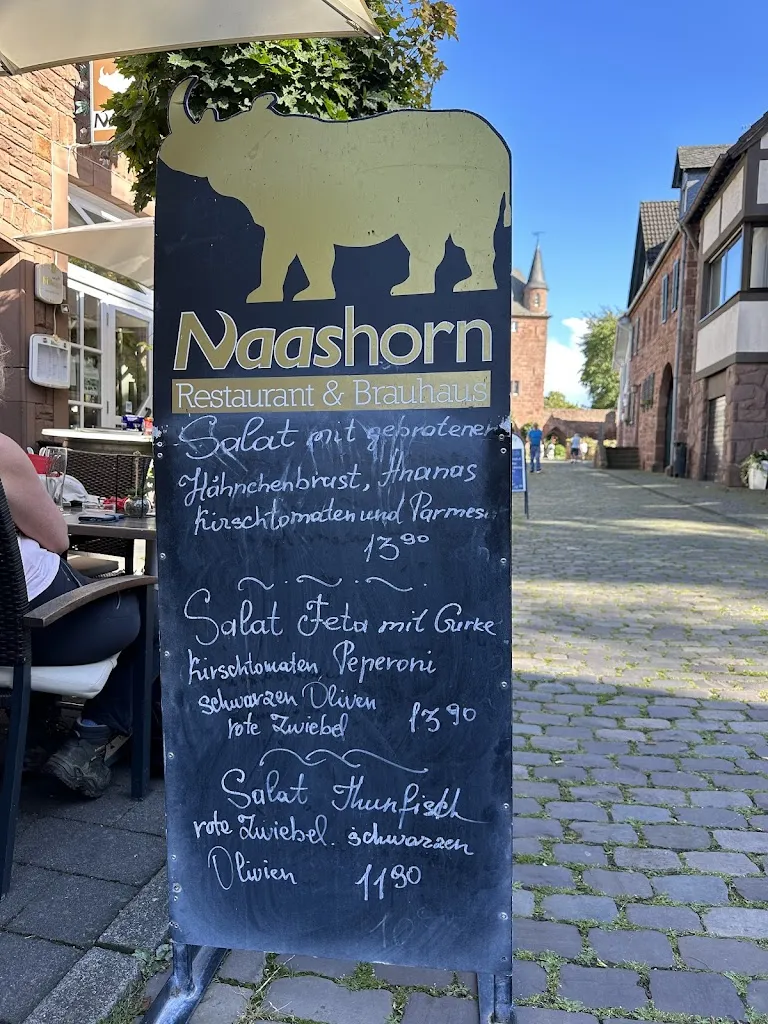 Naashorn
Restaurant & Brauhaus
Salat mit gebratener
Hähnchenbrust, Ananas
Kirschtomaten und Parmes
13 90
Salat Feta mit Gurke
Kirschtomaten Peperoni
schwarzen Oliven
rote Zwiebel 13 90
Salat Thunfisch
rote Zwiebel. schwarzen
Olivien 11 90